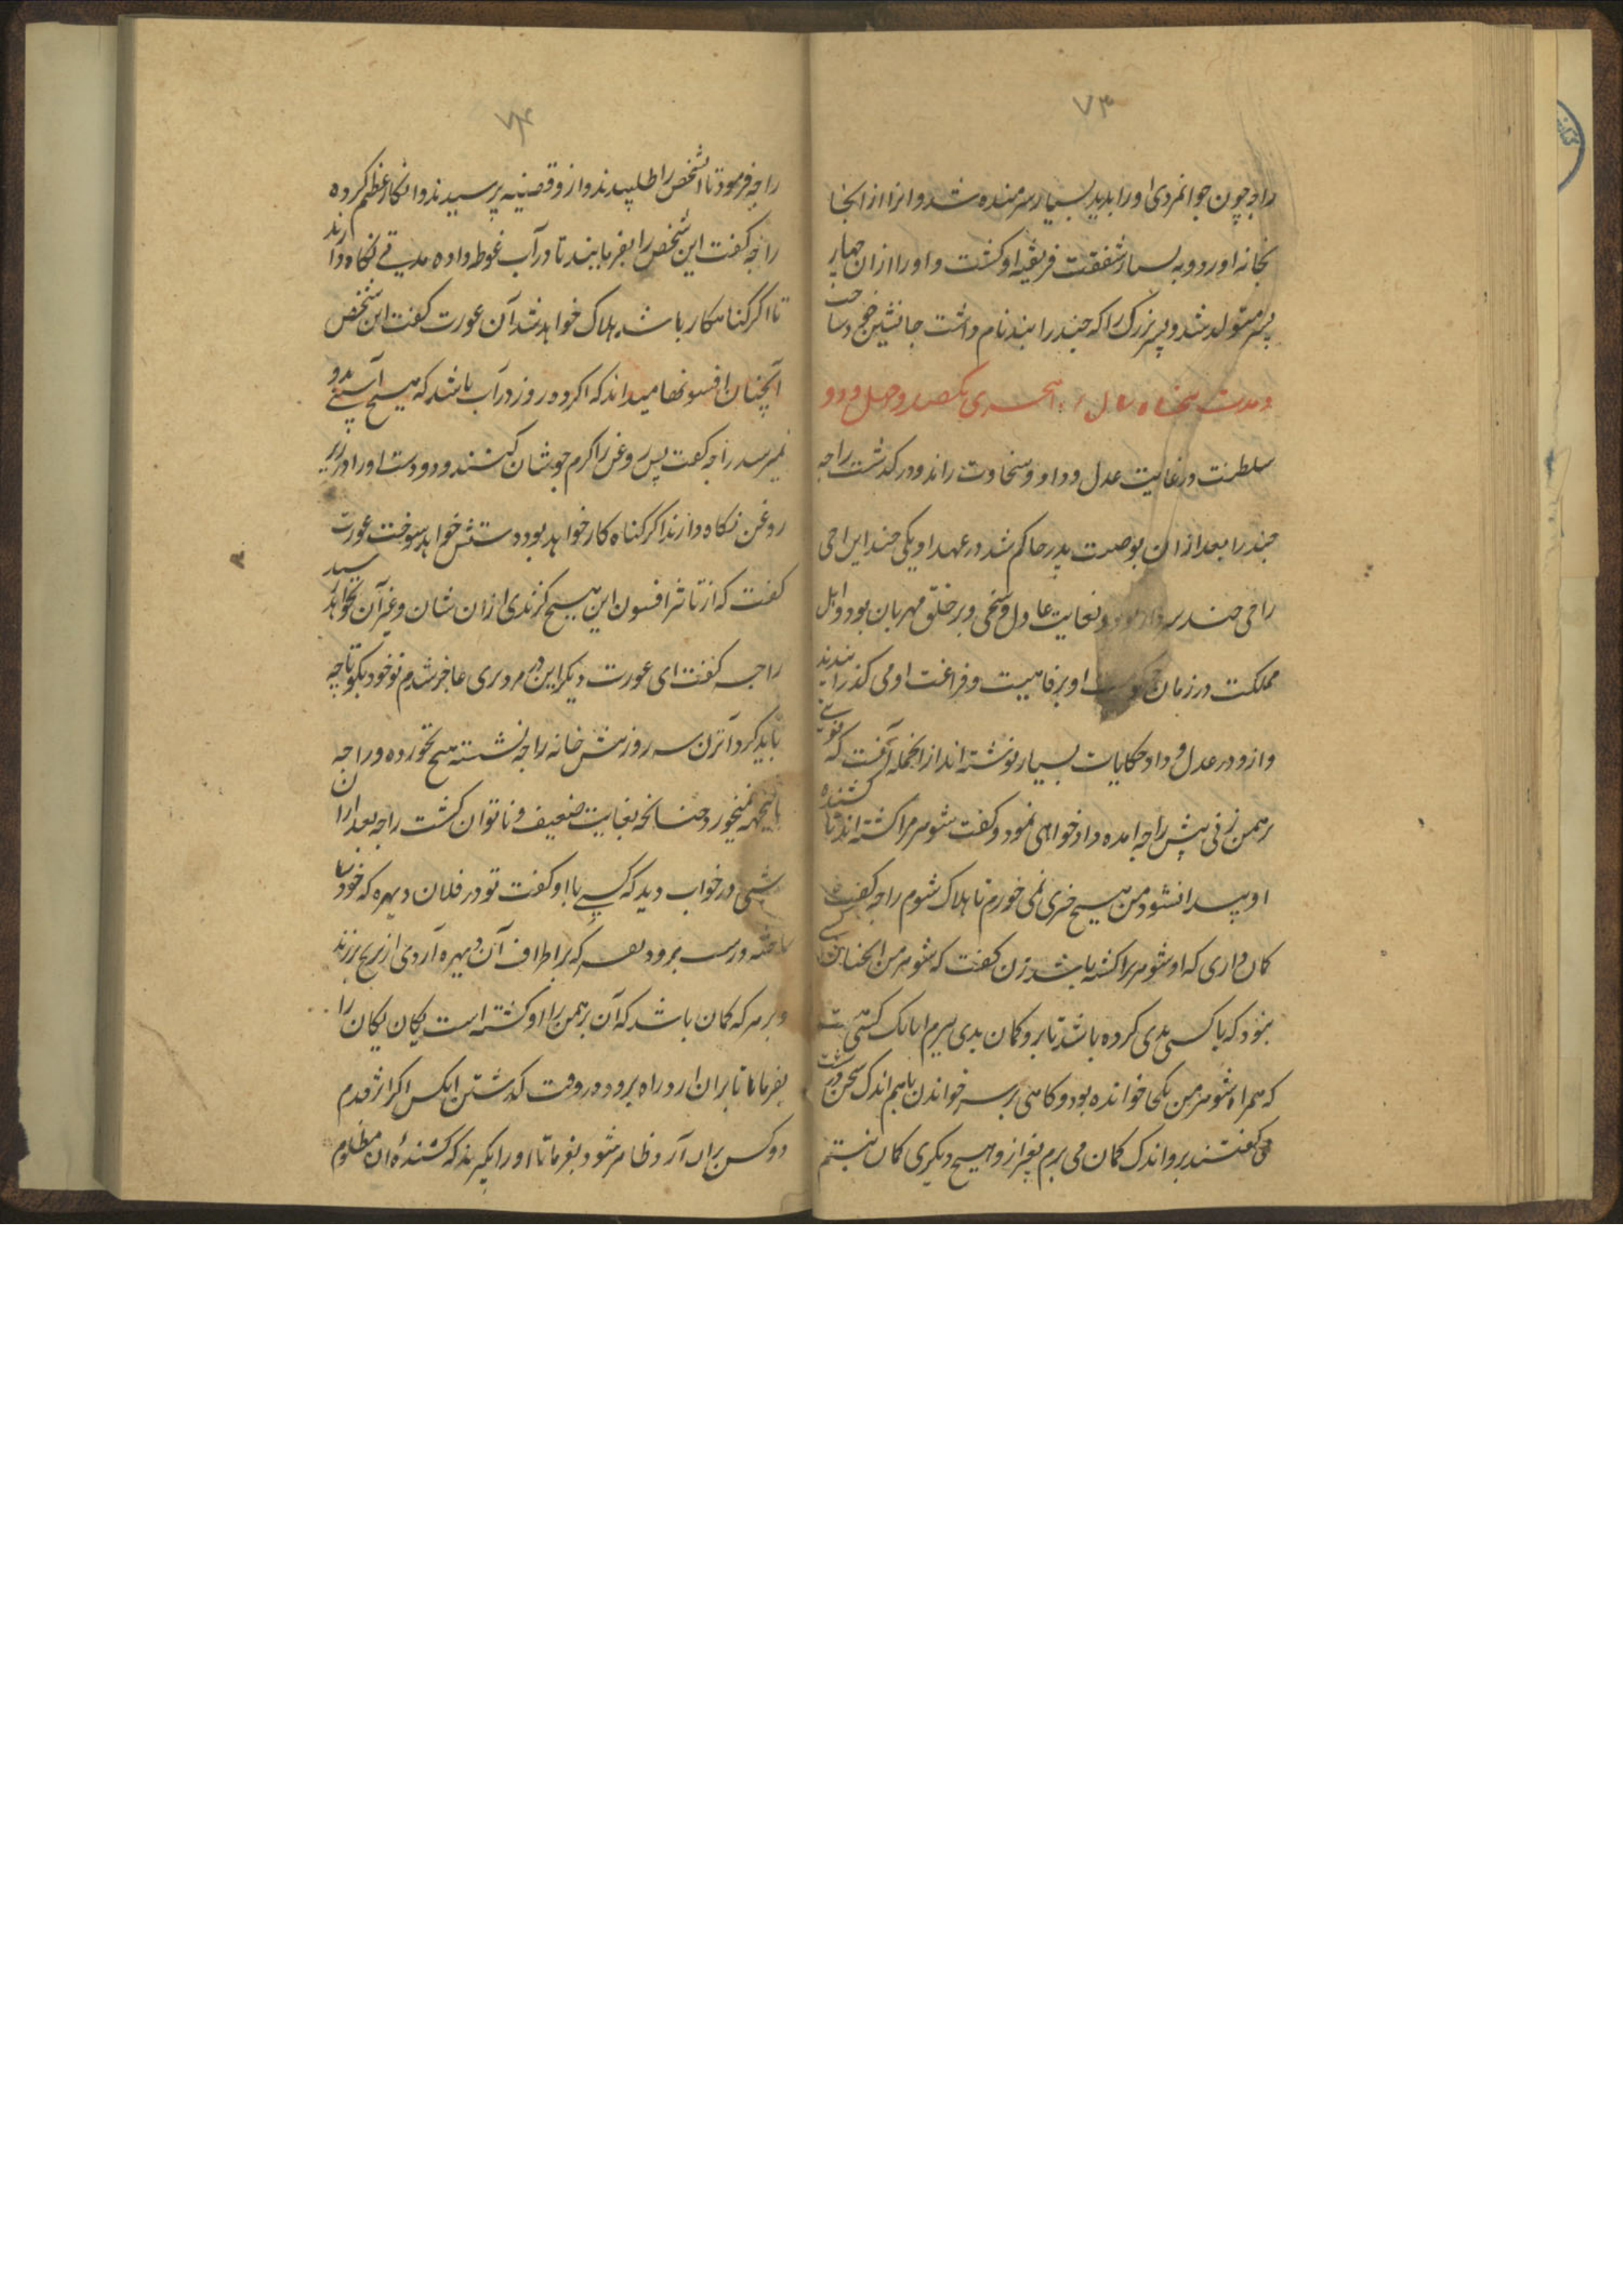 ۷۳
راجه چون جوانمردی اورا بدید بسیار شرمنده شد و انرا از انجا
بخانه اورد و به بسیار شفقت فریفته او گشت و اورا ازان چهار
پسر متولد شد و پسر بزرگ را که چندرا نند نام داشت جانشین خود ساخت
و مدت پنجاه سال یکصد و چهل و دو
سلطنت در غایت عدل و داد و سخاوت راند و درگذشت راجه
چندرا بعد از ان بوصیت پدر حاکم شد در عهد او یکی چند این راجی
راجی چند بغایت عادل و سخی و بر خلق مهربان بود و اهل
مملکت در زمان او برفاهیت و فراغت می گذرانیدند
و ازو در عدل و داد حکایات بسیار نوشته اند از انجمله آنست که نوبتی
برهمن زنی پیش راجه امده دادخواهی نمود و گفت شوهر مرا کشته اند تا کشنده
او پیدا نشود من هیچ چیزی نمی خورم تا هلاک شوم راجه گفت
کمان داری که او شوهر ترا کشته باشد زن گفت که شوهر من انچنان کسی
نبود که با کسی بدی کرده باشد تا برو کمان بدی برم اما یک کسی
که همراه شوهر من یکجا خوانده بود و گاهی بر سر خواندن باهم اندک سخن درشت
می گفتند برو اندک کمان می برم بغیر ازو هیچ دیگری کمان نیستم
۷۴
راجه فرمود تا آنشخص را طلبیدند و ازو قضیه پرسیدند و انکار عظیم کرده
راجه گفت این شخص را بفرمایند تا در آب غوطه داده مدتی نگاه دارند
تا اگر گناهکار باشد هلاک خواهد شد آن عورت گفت این شخص
آنچنان افسونها میداند که اگر ده روز در آب باشد که هیچ آسیبی بدو
نمیرسد راجه گفت پس روغن را گرم جوشان کنند و دو دست اورا در زیر
روغن نگاه دارند اگر گناه کار خواهد بود دستش خواهد سوخت عورت
گفت که از تاثیر افسون این هیچ گزندی ازان شان و غیر آن نخواهد رسید
راجه گفت ای عورت دیگر این در مروری عاجز شدم تو خود بگو تا چه
باید کرد آنزن سه روز پیش خانه راجه نشسته هیچ نخورده و راجه
باینجهه نمیخورد چنانچه بغایت ضعیف و ناتوان گشت راجه بعد ازان
شبی در خواب دید که کسی با او گفت تو در فلان دیهره که خود
ساخته و درست برو و بفرما که بر اطراف آن دیهره آردی از برنج بریزند
و بر هر که کمان باشد که آن برهمن را او کشته است یکان یکان را
بفرما تا بران ارد راه برود در وقت گذشتن انکس اگر اثر قدم
دو کس بران آرد ظاهر شود بفرما تا اورا بگیرند که کشنده ان مظلوم